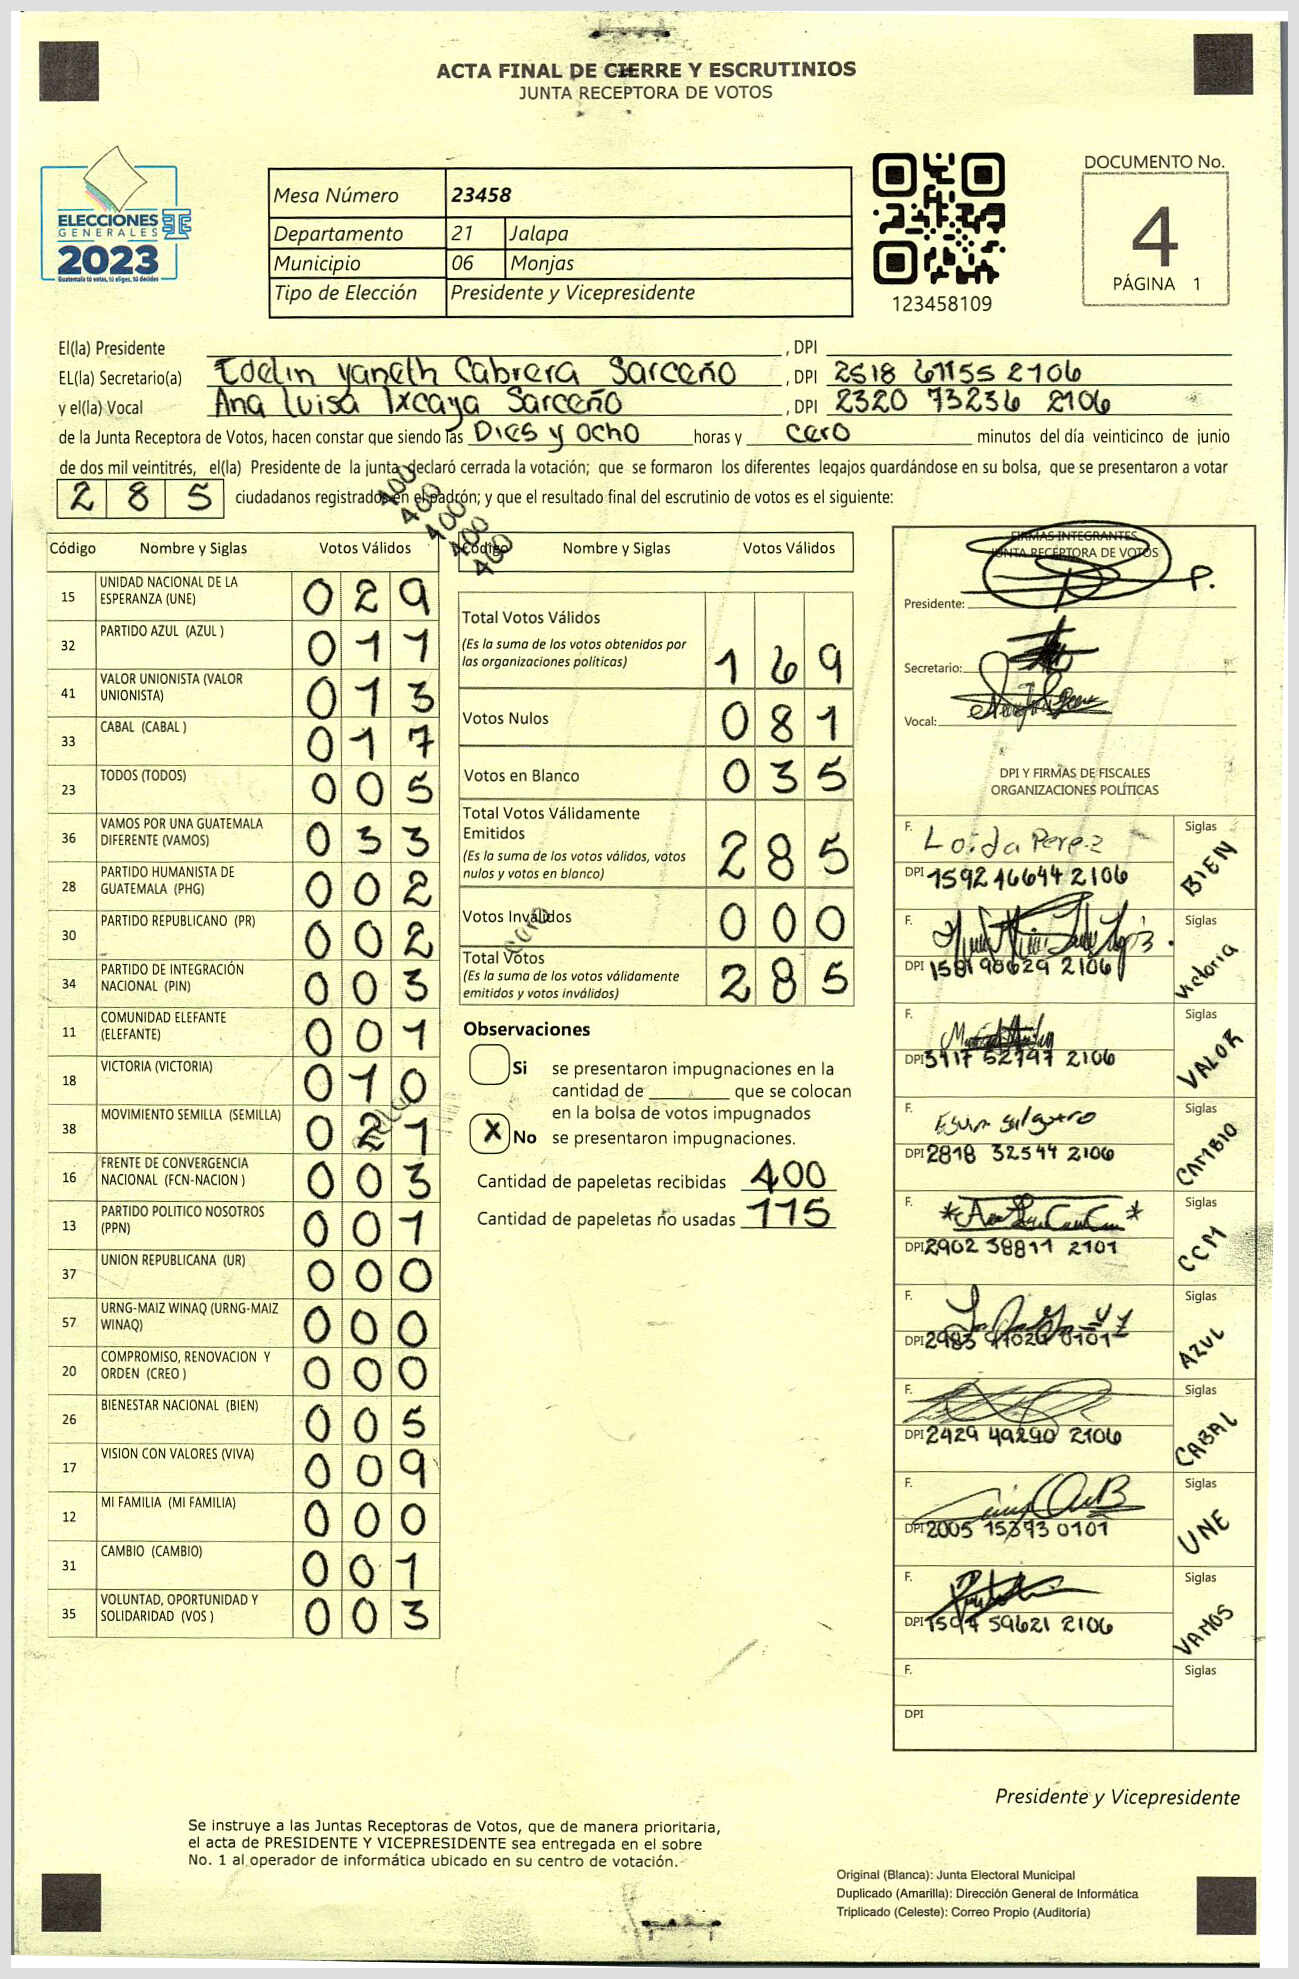 ACTA FINAL DE CIERRE Y ESCRUTINIOS
JUNTA RECEPTORA DE VOTOS
ELECCIONES
GENERALES
2023
Guatemala tú votas, tú eliges, tú decides
Mesa Número 23458
Departamento 21 Jalapa
Municipio 06 Monjas
Tipo de Elección Presidente y Vicepresidente
123458109
DOCUMENTO No.
4
PÁGINA 1
El(la) Presidente , DPI
EL(la) Secretario(a) Edelin Yaneth Cabrera Sarceño , DPI 2518 61155 2106
y el(la) Vocal Ana Luisa Ixcaya Sarceño , DPI 2320 73236 2106
de la Junta Receptora de Votos, hacen constar que siendo las Dies y ocho horas y cero minutos del día veinticinco de junio
de dos mil veintitrés, el(la) Presidente de la junta declaró cerrada la votación; que se formaron los diferentes legajos guardándose en su bolsa, que se presentaron a votar
285 ciudadanos registrados en el padrón; y que el resultado final del escrutinio de votos es el siguiente:
400
400
400
400
400
Código Nombre y Siglas Votos Válidos
15 UNIDAD NACIONAL DE LA ESPERANZA (UNE) 029
32 PARTIDO AZUL (AZUL ) 011
41 VALOR UNIONISTA (VALOR UNIONISTA) 013
33 CABAL (CABAL ) 017
23 TODOS (TODOS) 005
36 VAMOS POR UNA GUATEMALA DIFERENTE (VAMOS) 033
28 PARTIDO HUMANISTA DE GUATEMALA (PHG) 002
30 PARTIDO REPUBLICANO (PR) 002
34 PARTIDO DE INTEGRACIÓN NACIONAL (PIN) 003
11 COMUNIDAD ELEFANTE (ELEFANTE) 001
18 VICTORIA (VICTORIA) 010
38 MOVIMIENTO SEMILLA (SEMILLA) 021
16 FRENTE DE CONVERGENCIA NACIONAL (FCN-NACION ) 003
13 PARTIDO POLITICO NOSOTROS (PPN) 001
37 UNION REPUBLICANA (UR) 000
57 URNG-MAIZ WINAQ (URNG-MAIZ WINAQ) 000
20 COMPROMISO, RENOVACION Y ORDEN (CREO ) 000
26 BIENESTAR NACIONAL (BIEN) 005
17 VISION CON VALORES (VIVA) 009
12 MI FAMILIA (MI FAMILIA) 000
31 CAMBIO (CAMBIO) 001
35 VOLUNTAD, OPORTUNIDAD Y SOLIDARIDAD (VOS ) 003
Código Nombre y Siglas Votos Válidos
Total Votos Válidos
(Es la suma de los votos obtenidos por las organizaciones políticas) 169
Votos Nulos 081
Votos en Blanco 035
Total Votos Válidamente Emitidos
(Es la suma de los votos válidos, votos nulos y votos en blanco) 285
Votos Inválidos 000
cero
Total Votos
(Es la suma de los votos válidamente emitidos y votos inválidos) 285
Observaciones
Si se presentaron impugnaciones en la
cantidad de que se colocan
en la bolsa de votos impugnados
X No se presentaron impugnaciones.
Cantidad de papeletas recibidas 400
Cantidad de papeletas no usadas 115
FIRMAS INTEGRANTES
JUNTA RECEPTORA DE VOTOS
Presidente: P.
Secretario:
Vocal:
DPI Y FIRMAS DE FISCALES
ORGANIZACIONES POLÍTICAS
F. Loida Perez Siglas BIEN
DPI 1592 46644 2106
F. Siglas Victoria
DPI 1581 98629 2106
F. Siglas VALOR
DPI 3417 52797 2106
F. Siglas CAMBIO
DPI 2818 32544 2106
F. Siglas CCM
DPI 2902 38811 2101
F. Siglas AZUL
DPI 2983 0101
F. Siglas CABAL
DPI 2429 49290 2106
F. Siglas UNE
DPI 2005 15373 0101
F. Siglas VAMOS
DPI 1594 59621 2106
F. Siglas
DPI
Presidente y Vicepresidente
Se instruye a las Juntas Receptoras de Votos, que de manera prioritaria,
el acta de PRESIDENTE Y VICEPRESIDENTE sea entregada en el sobre
No. 1 al operador de informática ubicado en su centro de votación.
Original (Blanca): Junta Electoral Municipal
Duplicado (Amarilla): Dirección General de Informática
Triplicado (Celeste): Correo Propio (Auditoría)